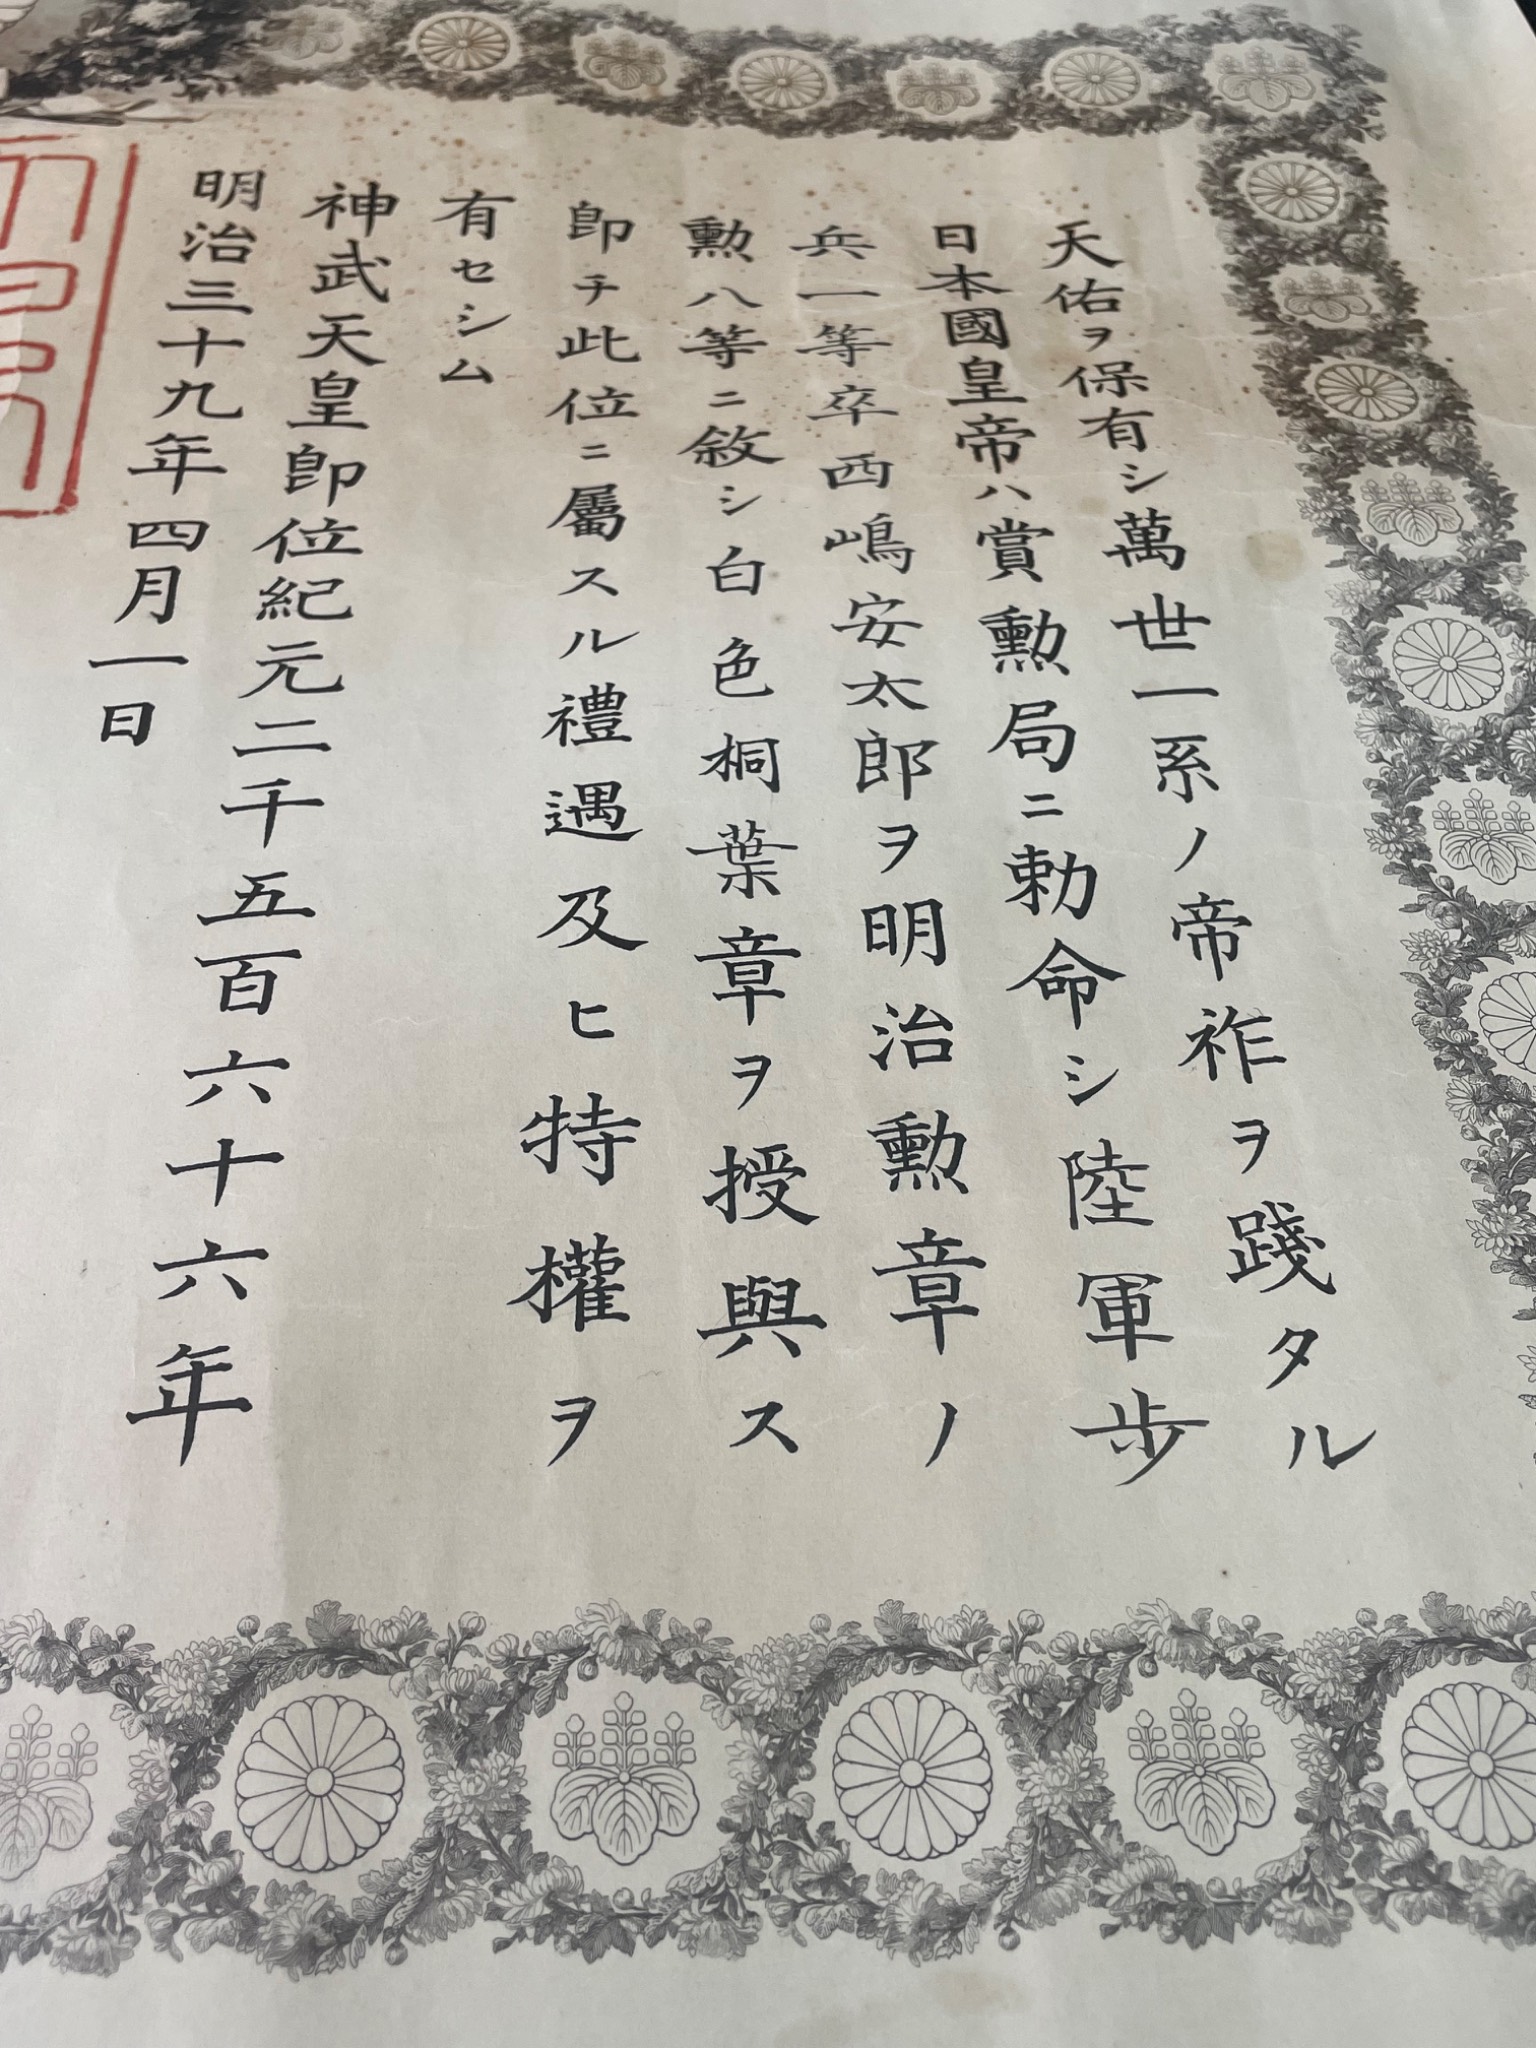 天佑ヲ保有シ萬世一系ノ帝祚ヲ踐タル
日本國皇帝ハ賞勲局ニ勅命シ陸軍歩
兵一等卒西嶋安太郎ヲ明治勲章ノ
勲八等ニ敘シ白色桐葉章ヲ授與ス
即チ此位ニ屬スル禮遇及ヒ特權ヲ
有セシム
神武天皇即位紀元二千五百六十六年
明治三十九年四月一日